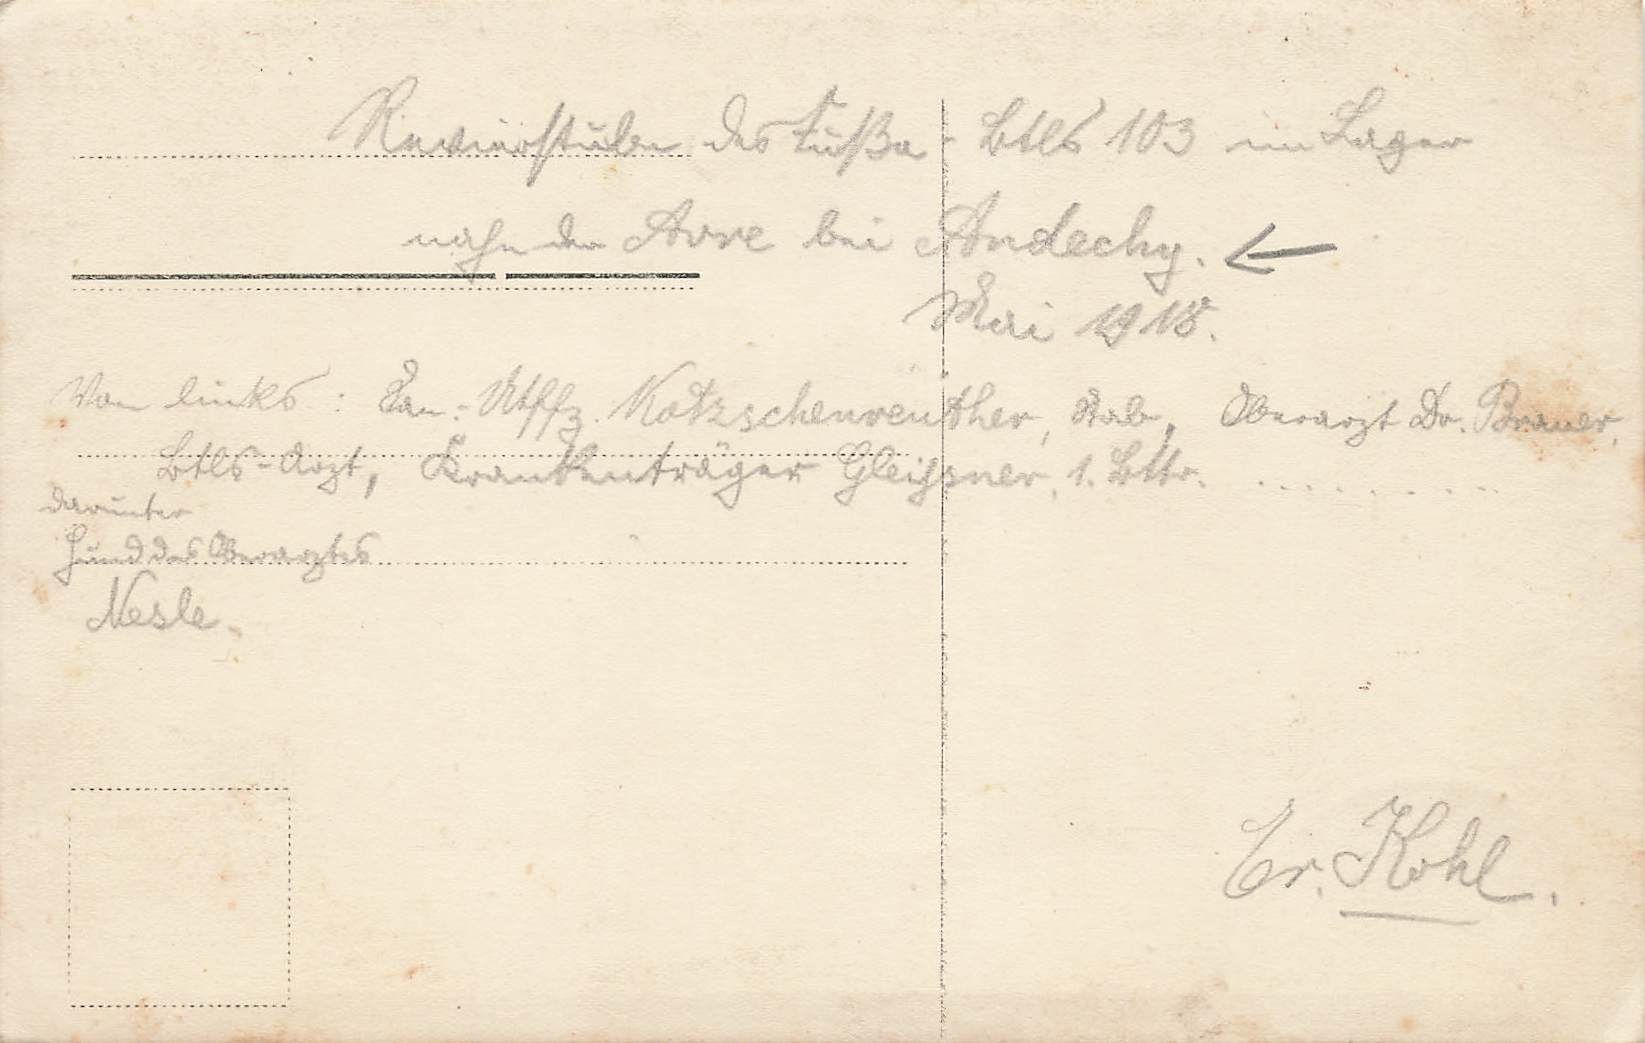 Revierstube des Fußa-Btls 103 im Lager
nahe der Avre bei Andechy.
Mai 1918.
Von links: San.-Utffz. Kotzschenreuther, Stab, Oberarzt Dr. Brauer,
Btls-Arzt, Krankenträger Gleißner, 1. Bttr. . . . . . . . .
darunter
Hund des Oberarztes
Nesle.
Er. Kohl.